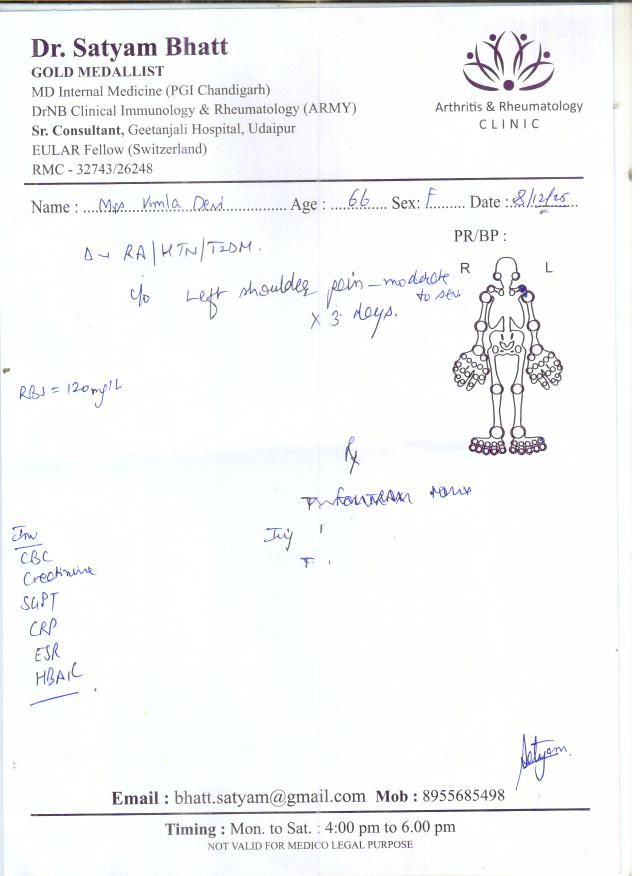 Dr. Satyam Bhatt
GOLD MEDALLIST
MD Internal Medicine (PGI Chandigarh)
DrNB Clinical Immunology & Rheumatology (ARMY)
Sr. Consultant, Geetanjali Hospital, Udaipur
EULAR Fellow (Switzerland)
RMC - 32743/26248
Arthritis & Rheumatology
CLINIC
Name : Mrs Vimla Devi Age : 66 Sex: F Date : 8/12/25
PR/BP :
RA/HTN/T2DM.
R L
c/o Left shoulder pain - moderate
to
x 3 days.
RBS = 120mg/L
Rx
Inj
Inv
CBC
Creatinine
SGPT
CRP
ESR
HBA1C
Satyam
Email : bhatt.satyam@gmail.com Mob : 8955685498
Timing : Mon. to Sat. : 4:00 pm to 6.00 pm
NOT VALID FOR MEDICO LEGAL PURPOSE